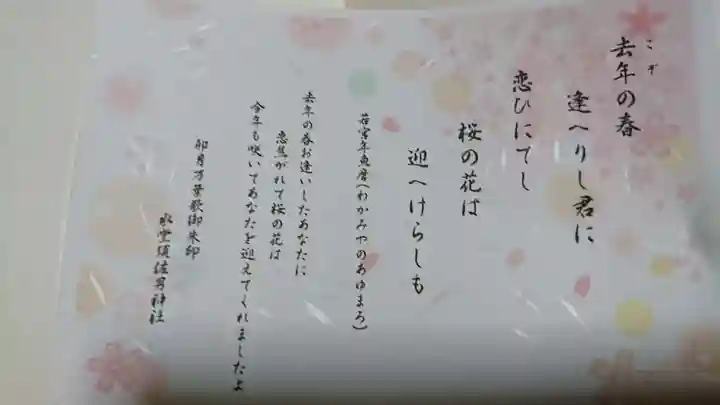 こぞ
去年の春
逢へりし君に
恋ひにてし
桜の花は
迎へけらしも
若宮年魚麿(わかみやのあゆまろ)
去年の春お逢いしたあなたに
恋焦がれて桜の花は
今年も咲いてあなたを迎えてくれましたよ
卯月万葉歌御朱印
水堂須佐男神社